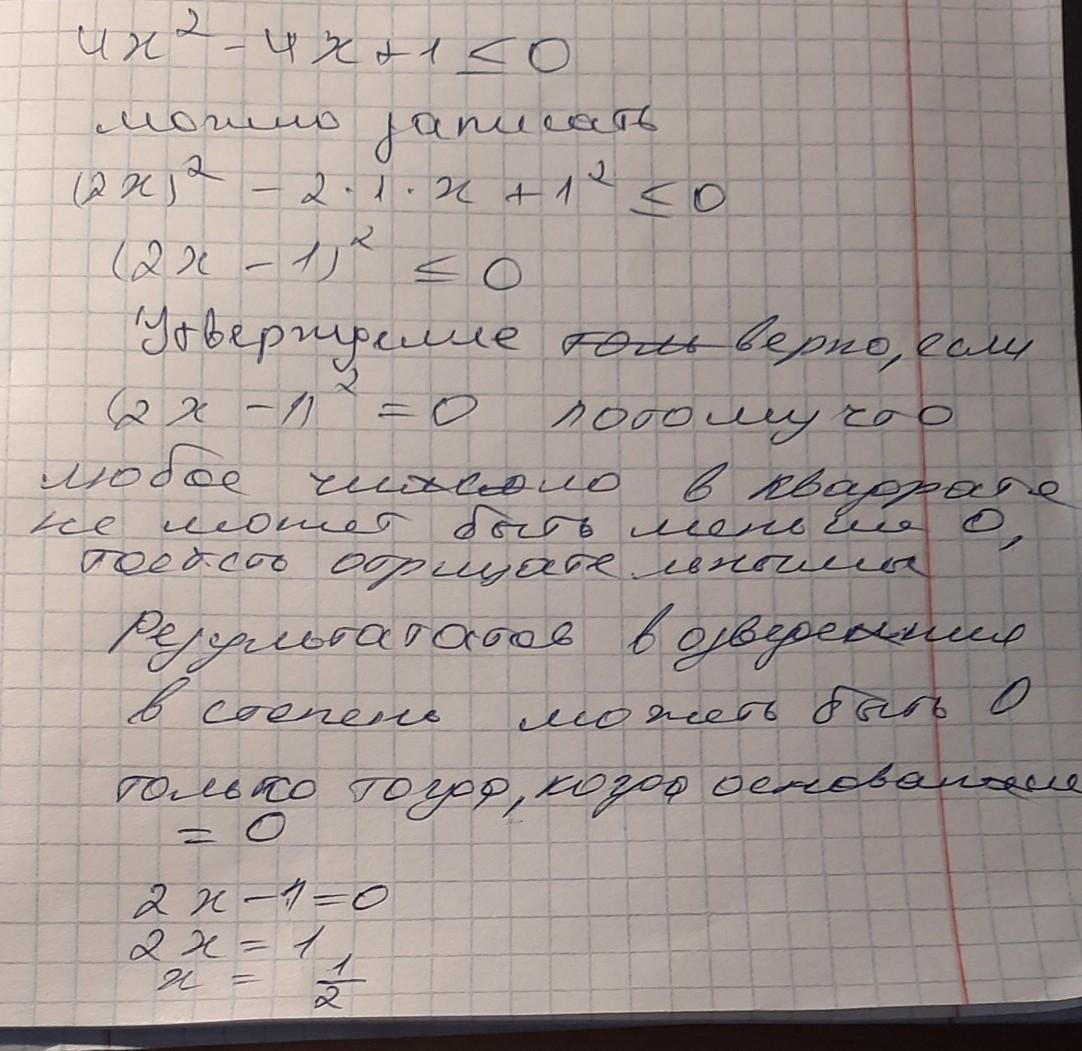 4x² - 4x + 1 ≤ 0
можно записать
(2x)² - 2·1·x + 1² ≤ 0
(2x - 1)² ≤ 0
Утверждение верно, если
(2x - 1)² = 0 потому что
любое число в квадрате
не может быть меньше 0,
тоесть отрицательным
Результататов возведения
в степень можеть быть 0
только тогда, когда основание
= 0
2x - 1 = 0
2x = 1
x = 1/2